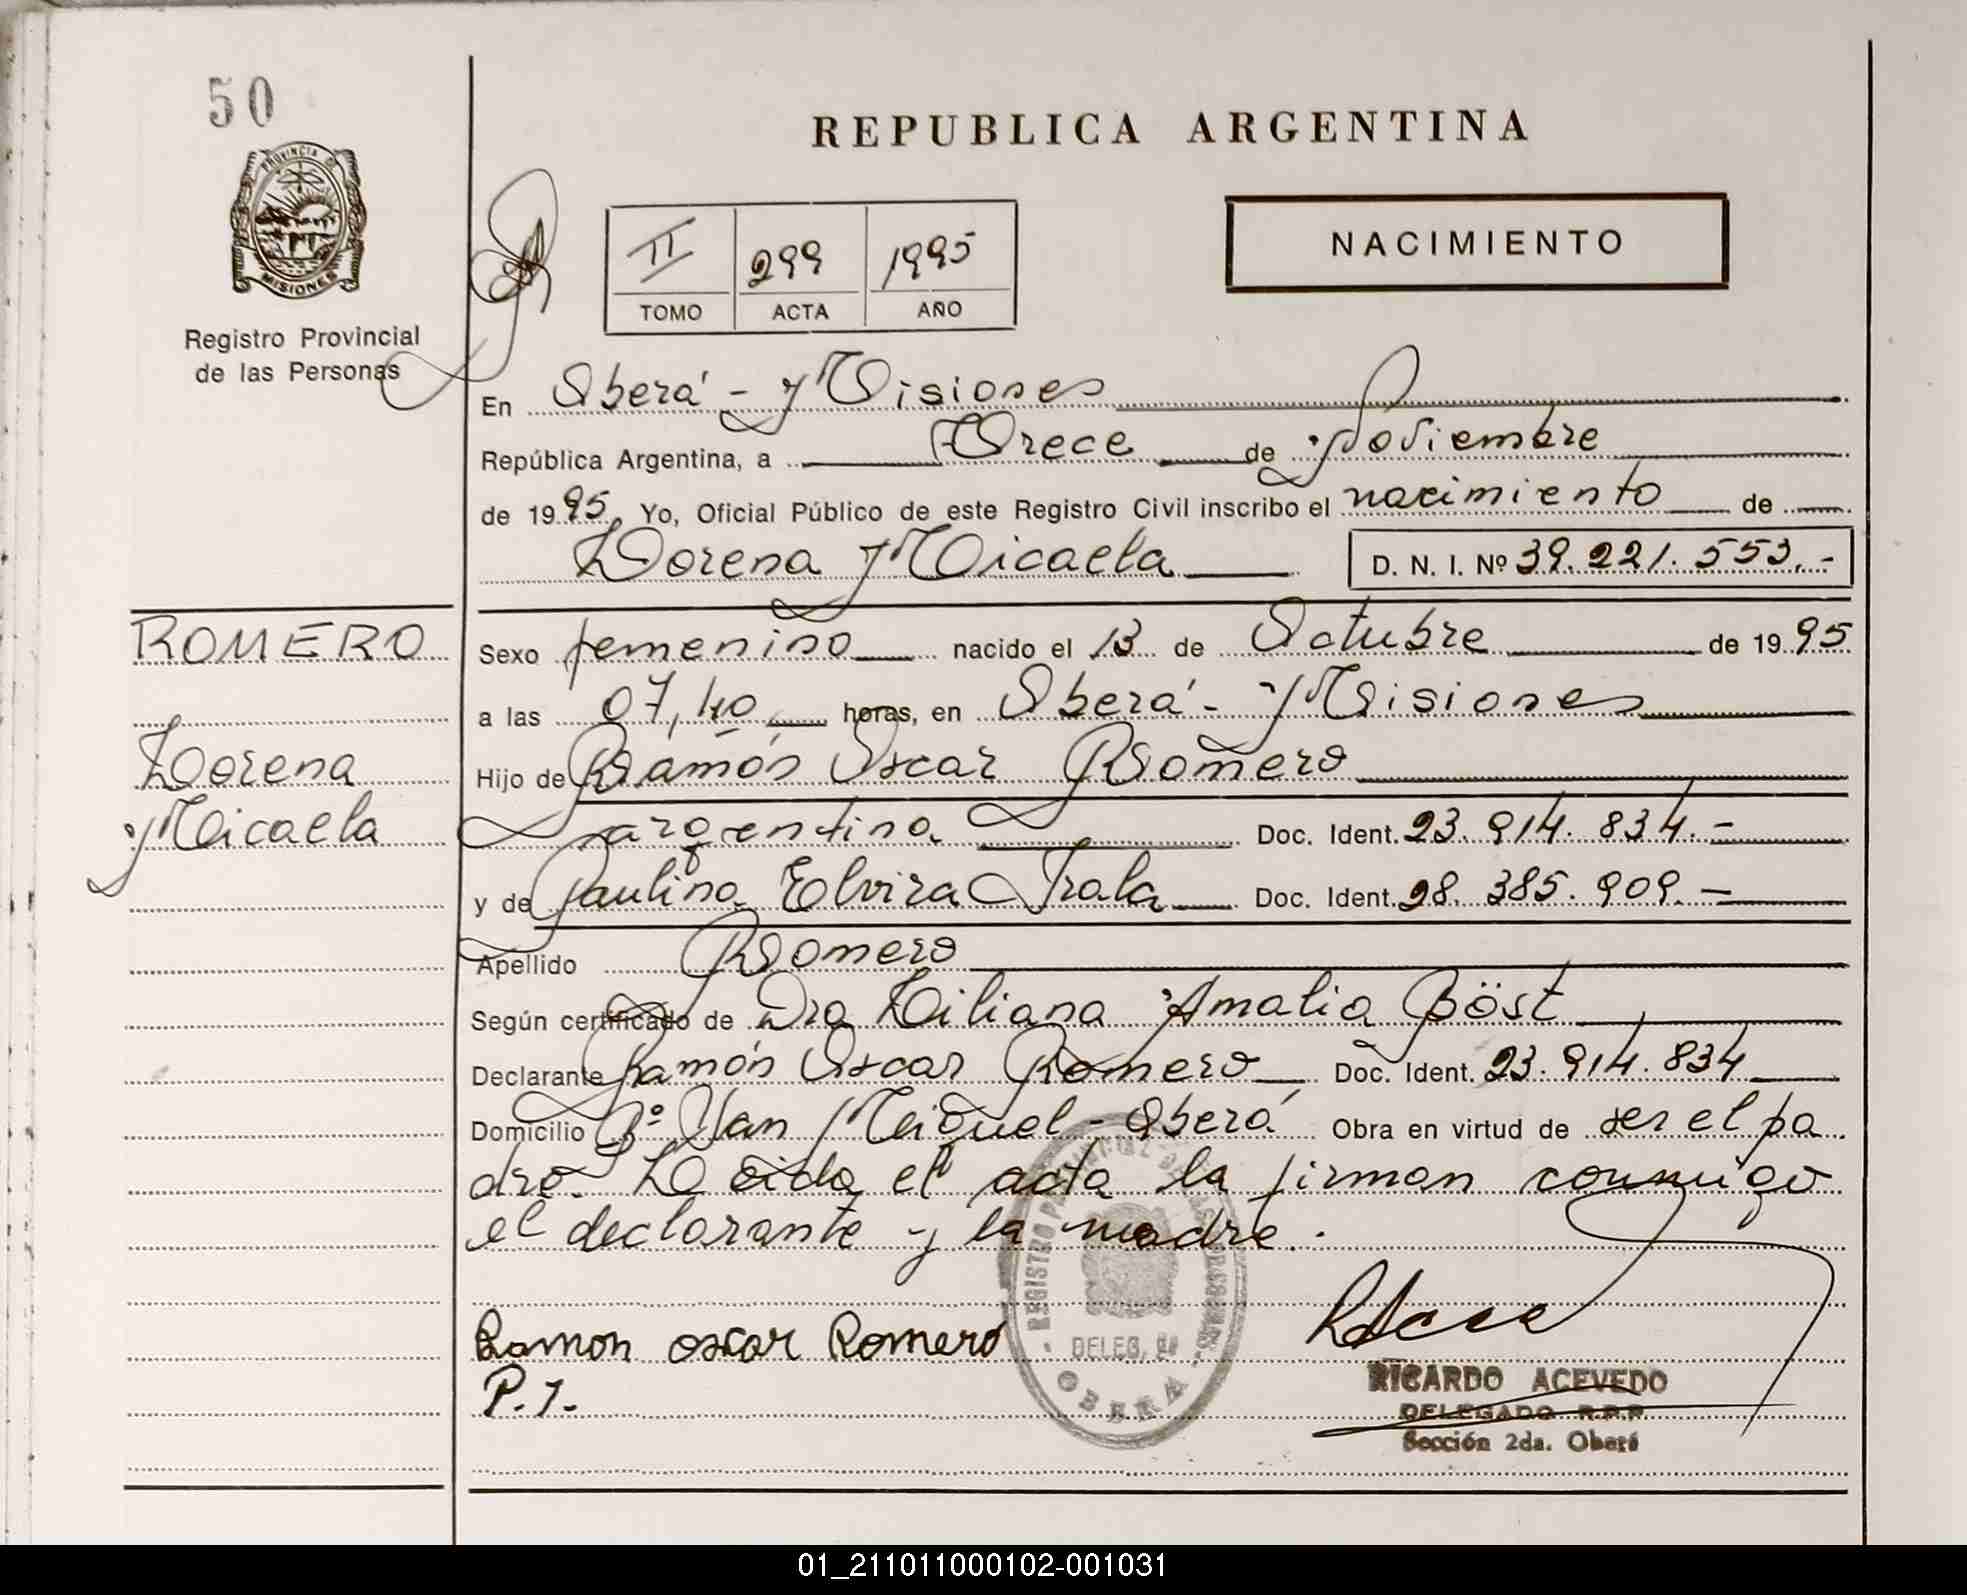 50
REPUBLICA ARGENTINA
PROVINCIA DE
MISIONES
Registro Provincial
de las Personas
II 299 1995
TOMO ACTA AÑO
NACIMIENTO
En Oberá - Misiones
República Argentina, a Trece de Noviembre
de 1995 Yo, Oficial Público de este Registro Civil inscribo el nacimiento de
Lorena Micaela D. N. I. Nº 39.221.553.-
ROMERO
Lorena
Micaela
Sexo femenino nacido el 13 de Octubre de 1995
a las 07,40 horas, en Oberá - Misiones
Hijo de Ramón Oscar Romero
argentino Doc. Ident. 23.914.834.-
y de Paulina Elvira Irala Doc. Ident. 28.385.909.-
Apellido Romero
Según certificado de Dra Liliana Amalia Böst
Declarante Ramón Oscar Romero Doc. Ident. 23.914.834
Domicilio Bº San Miguel - Oberá Obra en virtud de ser el pa
dre. Leida el acta la firman conmigo
el declarante y la madre.
REGISTRO PROVINCIAL DE LAS PERSONAS
DELEG.
OBERA
Ramon oscar Romero
P.I.
RICARDO ACEVEDO
DELEGADO R.P.P.
Sección 2da. Oberá
01_211011000102-001031